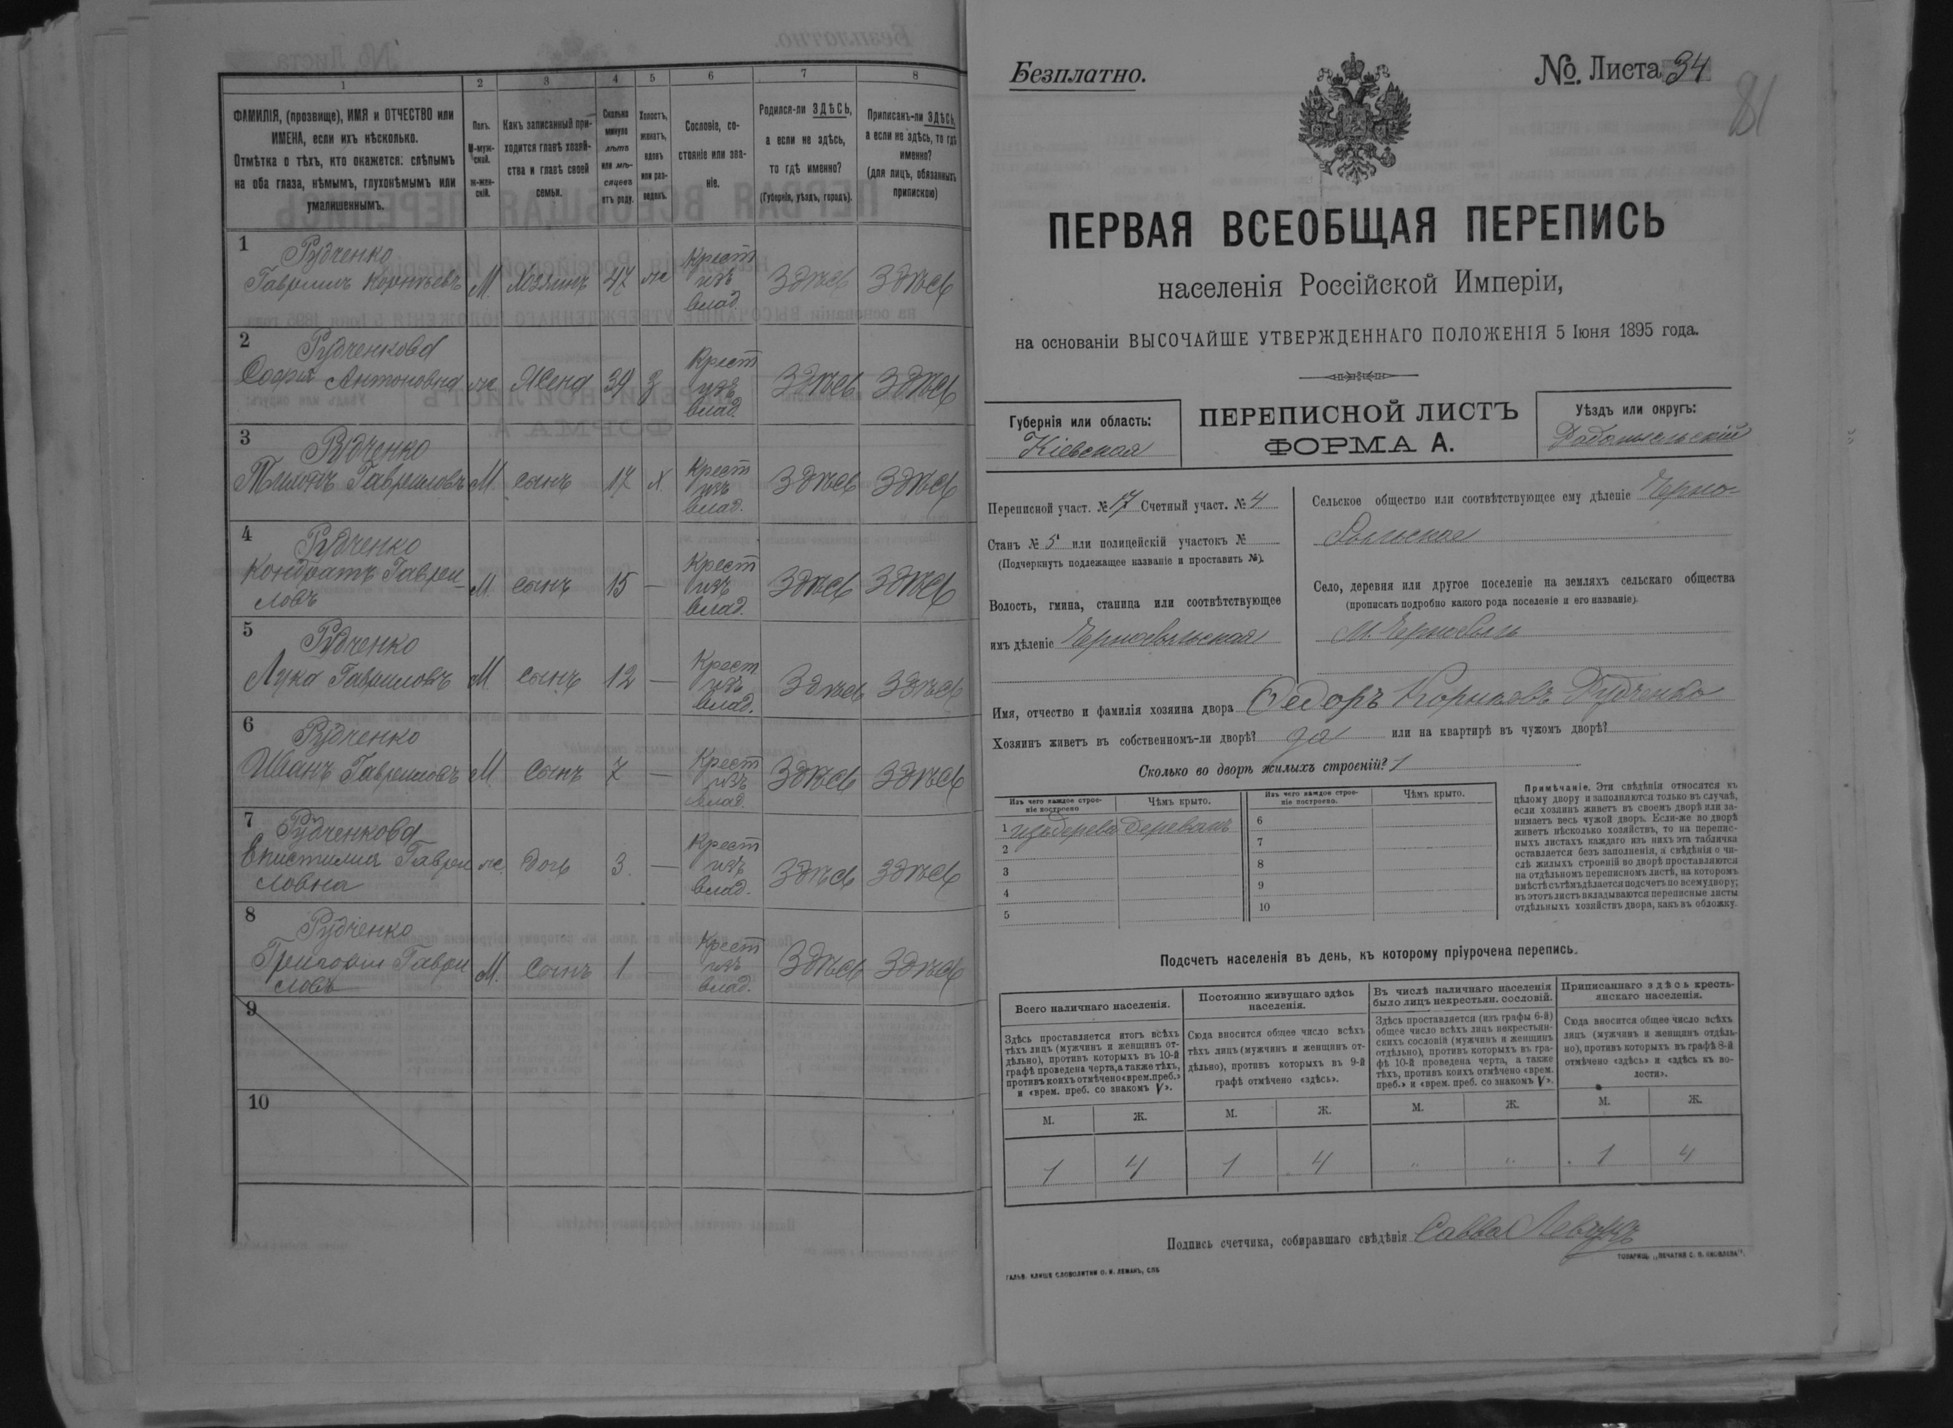 1 2 3 4 5 6 7 8
ФАМИЛІЯ, (прозвище), ИМЯ и ОТЧЕСТВО или
ИМЕНА, если ихъ нѣсколько.
Отмѣтка о тѣхъ, кто окажется: слѣпымъ
на оба глаза, нѣмымъ, глухонѣмымъ или
умалишеннымъ.
Полъ.
М-муж-
ской.
ж-жен-
скій.
Какъ записанный при-
ходится главѣ хозяй-
ства и главѣ своей
семьи.
Сколько
минуло
лѣтъ
или мѣ-
сяцевъ
отъ роду.
Холостъ,
женатъ,
вдовъ
или раз-
веденъ.
Сословіе, со-
стояніе или зва-
ніе.
Родился-ли ЗДѢСЬ,
а если не здѣсь,
то гдѣ именно?
(Губернія, уѣздъ, городъ).
Приписанъ-ли ЗДѢСЬ,
а если не здѣсь, то гдѣ
именно?
(для лицъ, обязанныхъ
припискою)
1 Рудченко
Гавриилъ Корнѣевъ М. Хозяинъ 47 же Крест изъ влад Здѣсь Здѣсь
2 Рудченкова
Софія Антоновна ж. Жена 39 з Крест изъ влад Здѣсь Здѣсь
3 Рудченко
Гавриловъ М. сынъ 17 х Крест изъ влад. Здѣсь Здѣсь
4 Рудченко
Кондратъ Гаври-
ловъ М. сынъ 15 — Крест изъ влад. Здѣсь Здѣсь
5 Рудченко
Лука Гавриловъ М. сынъ 12 — Крест изъ влад. Здѣсь Здѣсь
6 Рудченко
Иванъ Гавриловъ М. Сынъ 7 — Крест изъ влад. Здѣсь Здѣсь
7 Рудченкова
Гаври
ловна ж. дочь 3. — Крест изъ влад. Здѣсь Здѣсь
8 Рудченко
Григорій Гаври
ловъ М. Сынъ 1 — Крест изъ влад. Здѣсь Здѣсь
9
10
Безплатно.
№. Листа 34
81
ПЕРВАЯ ВСЕОБЩАЯ ПЕРЕПИСЬ
населенія Россійской Имперіи,
на основаніи ВЫСОЧАЙШЕ УТВЕРЖДЕННАГО ПОЛОЖЕНІЯ 5 Іюня 1895 года.
Губернія или область:
Кіевская
ПЕРЕПИСНОЙ ЛИСТЪ
ФОРМА А.
Уѣздъ или округъ:
Радомысльскій
Переписной участ. № 17 Счетный участ. № 4
Станъ № 5 или полицейскій участокъ №
(Подчеркнуть подлежащее названіе и проставить №).
Волость, гмина, станица или соотвѣтствующее
имъ дѣленіе Чернобыльская
Сельское общество или соотвѣтствующее ему дѣленіе Черно-
быльское
Село, деревня или другое поселеніе на земляхъ сельскаго общества
(прописать подробно какого рода поселеніе и его названіе).
М. Чернобыль
Имя, отчество и фамилія хозяина двора Ѳедоръ Корнѣевъ Рудченко
Хозяинъ живетъ въ собственномъ-ли дворѣ? да или на квартирѣ въ чужомъ дворѣ?
Сколько во дворѣ жилыхъ строеній? 1
Изъ чего каждое строе-
ніе построено
Чѣмъ крыто.
Изъ чего каждое строе-
ніе построено.
Чѣмъ крыто.
1 изъ дерева деревомъ 6
2 7
3 8
4 9
5 10
Примѣчаніе. Эти свѣдѣнія относятся къ
цѣлому двору и заполняются только въ случаѣ,
если хозяинъ живетъ въ своемъ дворѣ или за-
нимаетъ весь чужой дворъ. Если-же во дворѣ
живетъ нѣсколько хозяйствъ, то на перепис-
ныхъ листахъ каждаго изъ нихъ эта табличка
оставляется безъ заполненія, а свѣдѣнія о чи-
слѣ жилыхъ строеній во дворѣ проставляются
на отдѣльномъ переписномъ листѣ, на которомъ
вмѣстѣ съ тѣмъ дѣлается подсчетъ по всему двору;
въ этотъ листъ вкладываются переписные листы
отдѣльныхъ хозяйствъ двора, какъ въ обложку.
Подсчетъ населенія въ день, къ которому пріурочена перепись.
Всего наличнаго населенія.
Постоянно живущаго здѣсь
населенія.
Въ числѣ наличнаго населенія
было лицъ некрестьян. сословій.
Приписаннаго здѣсь кресть-
янскаго населенія.
Здѣсь проставляется итогъ всѣхъ
тѣхъ лицъ (мужчинъ и женщинъ от-
дѣльно), противъ которыхъ въ 10-й
графѣ проведена черта, а также тѣхъ,
противъ коихъ отмѣчено «врем. преб.»
и «врем. преб. со знакомъ V».
Сюда вносится общее число всѣхъ
тѣхъ лицъ (мужчинъ и женщинъ от-
дѣльно), противъ которыхъ въ 9-й
графѣ отмѣчено «здѣсь».
Здѣсь проставляется (изъ графы 6-й)
общее число всѣхъ лицъ некрестьян-
скихъ сословій (мужчинъ и женщинъ
отдѣльно), противъ которыхъ въ гра-
фѣ 10-й проведена черта, а также
тѣхъ, противъ коихъ отмѣчено «врем.
преб.» и «врем. преб. со знакомъ V».
Сюда вносится общее число всѣхъ
лицъ (мужчинъ и женщинъ отдѣль-
но), противъ которыхъ въ графѣ 8-й
отмѣчено «здѣсь» и «здѣсь въ во-
лости».
М. Ж. М. Ж. М. Ж. М. Ж.
1 4 1 4 " " 1 4
Подпись счетчика, собиравшаго свѣдѣнія Савва
ГАЛЬВ. КЛИШЕ СЛОВОЛИТНИ О. И. ЛЕМАНЪ, СПБ
ТОВАРИЩ. „ПЕЧАТНЯ С. П. ЯКОВЛЕВА".